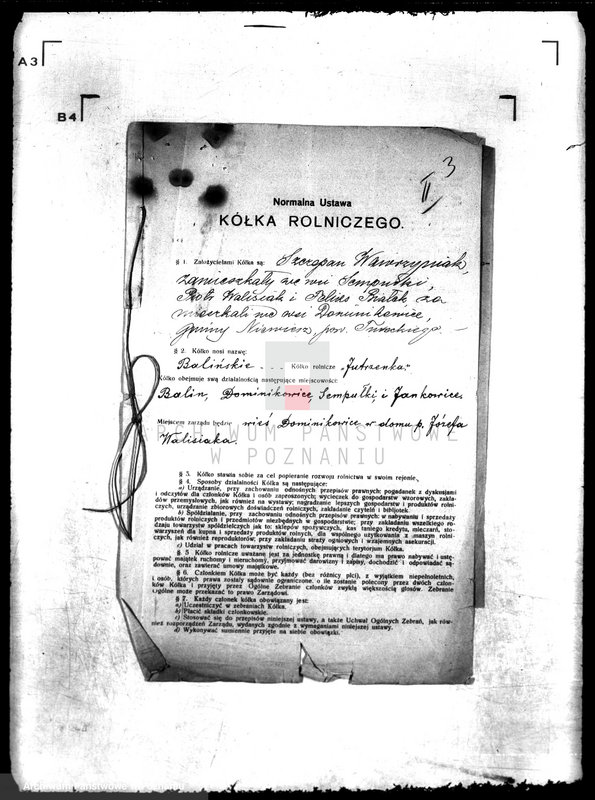 A3
B4
3
II
Normalna Ustawa
KÓŁKA ROLNICZEGO.
§ 1. Założycielami Kółka są: Szczepan Wawrzyniak,
zamieszkały we wsi Sempułki,
Piotr Walisiak i Feliks Białek za
mieszkali we wsi Dominikowice,
gminy Niewiesz, pow. Tureckiego. —
§ 2. Kółko nosi nazwę:
Balińskie . . . Kółko rolnicze „Jutrzenka"
Kółko obejmuje swą działalnością następujące miejscowości:
Balin, Dominikowice, Sempułki, i Jankowice.
Miejscem zarządu będzie wieś Dominikowice w domu p. Józefa
Walisiaka.
ARCHIWUM PAŃSTWOWE
W POZNANIU
§ 3. Kółko stawia sobie za cel popieranie rozwoju rolnictwa w swoim rejonie.
§ 4. Sposoby działalności Kółka są następujące:
a) Urządzanie, przy zachowaniu odnośnych przepisów prawnych; pogadanek z dyskusjami
i odczytów dla członków Kółka i osób zaproszonych; wycieczek do gospodarstw wzorowych, zakła-
dów przemysłowych, jak również na wystawy; nagradzanie lepszych gospodarstw i produktów rolni-
czych, urządzanie zbiorowych doświadczeń rolniczych, zakładanie czytelń i bibljotek.
b) Spółdziałanie, przy zachowaniu odnośnych przepisów prawnych: w nabywaniu i sprzedaży
produktów rolniczych i przedmiotów niezbędnych w gospodarstwie; przy zakładaniu wszelkiego ro-
dzaju towarzystw spółdzielczych jak to: sklepów spożywczych, kas taniego kredytu, mleczarń, sto-
warzyszeń dla kupna i sprzedaży produktów rolnych, dla wspólnego użytkowania z maszyn rolni-
czych, jak również reproduktorów; przy zakładaniu straży ogniowych i wzajemnych asekuracji.
c) Udział w pracach towarzystw rolniczych, obejmujących terytorjum Kółka.
§ 5. Kółko rolnicze uważane jest za jednostkę prawną i dlatego ma prawo nabywać i ustę-
pować majątek ruchomy i nieruchomy, przyjmować darowizny i zapisy, dochodzić i odpowiadać są-
downie, oraz zawierać umowy majątkowe.
§ 6. Członkiem Kółka może być każdy (bez różnicy płci), z wyjątkiem niepełnoletnich,
i osób, których prawa zostały sądownie ograniczone, o ile zostanie polecony przez dwóch człon-
ków Kółka i przyjęty przez Ogólne Zebranie członków zwykłą większością głosów. Zebranie
Ogólne może przekazać to prawo Zarządowi.
§ 7. Każdy członek kółka obowiązany jest:
a) Uczestniczyć w zebraniach Kółka.
b) Płacić składki członkowskie.
c) Stosować się do przepisów niniejszej ustawy, a także Uchwał Ogólnych Zebrań, jak rów-
nież rozporządzeń Zarządu, wydanych zgodnie z wymaganiami niniejszej ustawy.
d) Wykonywać sumiennie przyjęte na siebie obowiązki.
Archiwum Państwowe